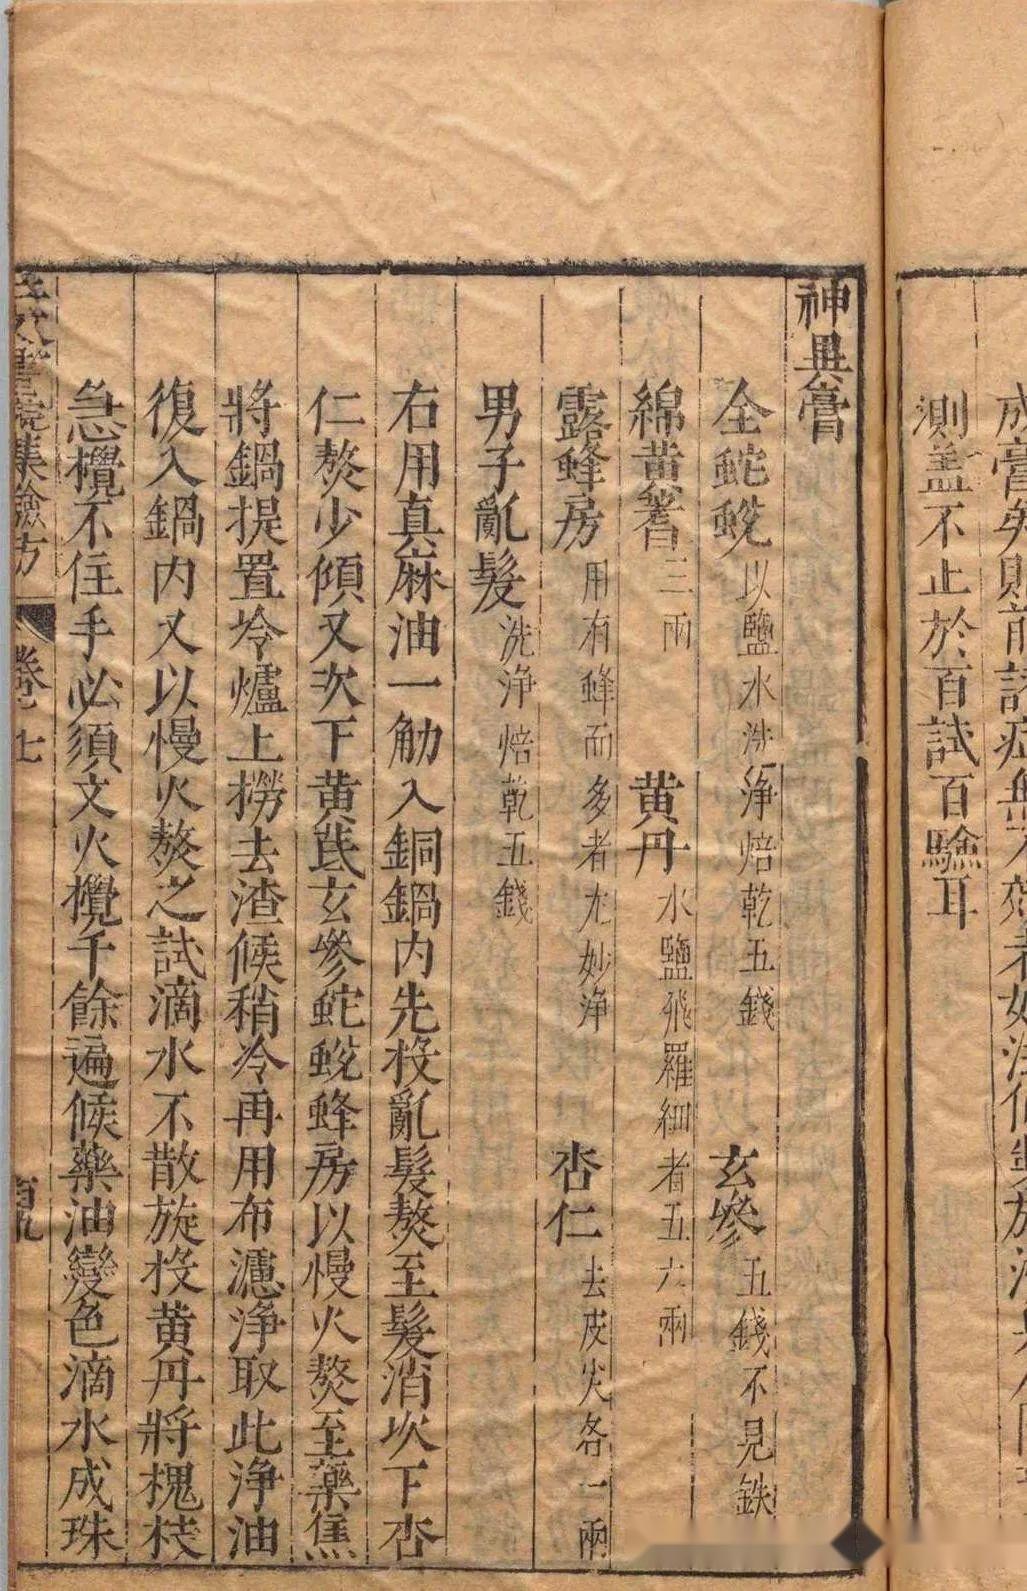 測盖不止於百試百驗耳
神異膏
全蛇蛻以鹽水洗淨焙乾五錢 玄參五錢不見鉄
綿黄蓍三兩 黄丹水鹽飛羅細者五六兩
露蜂房用有蜂而多者尤妙淨 杏仁去皮尖各一兩
男子亂髮洗淨焙乾五錢
右用真麻油一觔入銅鍋内先投亂髮熬至髮消次下杏
仁熬少傾又次下黄芪玄參蛇蛻蜂房以慢火熬至藥焦
將鍋提置冷爐上撈去渣候稍冷再用布濾淨取此淨油
復入鍋内又以慢火熬之試滴水不散旋投黄丹將槐枝
急攪不住手必須文火攪千餘遍候藥油變色滴水成珠
書院集驗方 卷七